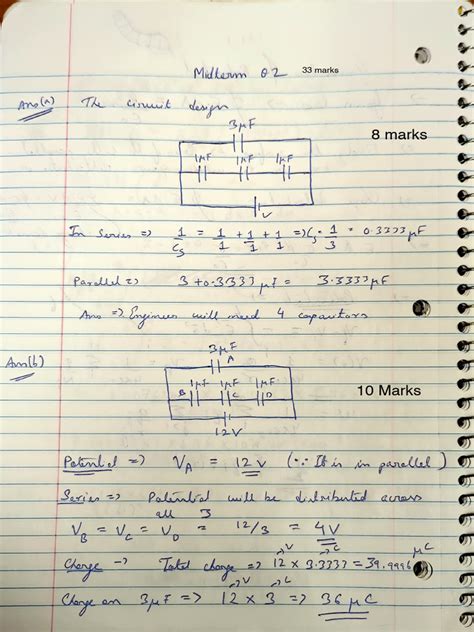 Midterm Q2 33 marks
Ans(a) The circuit design
8 marks
3μF
1μF 1μF 1μF
V
In Series => 1/Cs = 1/1 + 1/1 + 1/1 => Cs = 1/3 = 0.3333 μF
Parallel => 3 + 0.3333 μF = 3.3333 μF
Ans => Engineer will need 4 capacitors
Ans(b)
3μF
A
10 Marks
1μF 1μF 1μF
B C D
12V
Potential => VA = 12 V (∵ It is in parallel)
Series => Potential will be distributed across
all 3
VB = VC = VD = 12/3 = 4V
Charge -> Total charge => 12 × 3.3333 = 39.9996 μC
->V ->C
Charge on 3μF => 12 × 3 => 36 μC
->V ->C